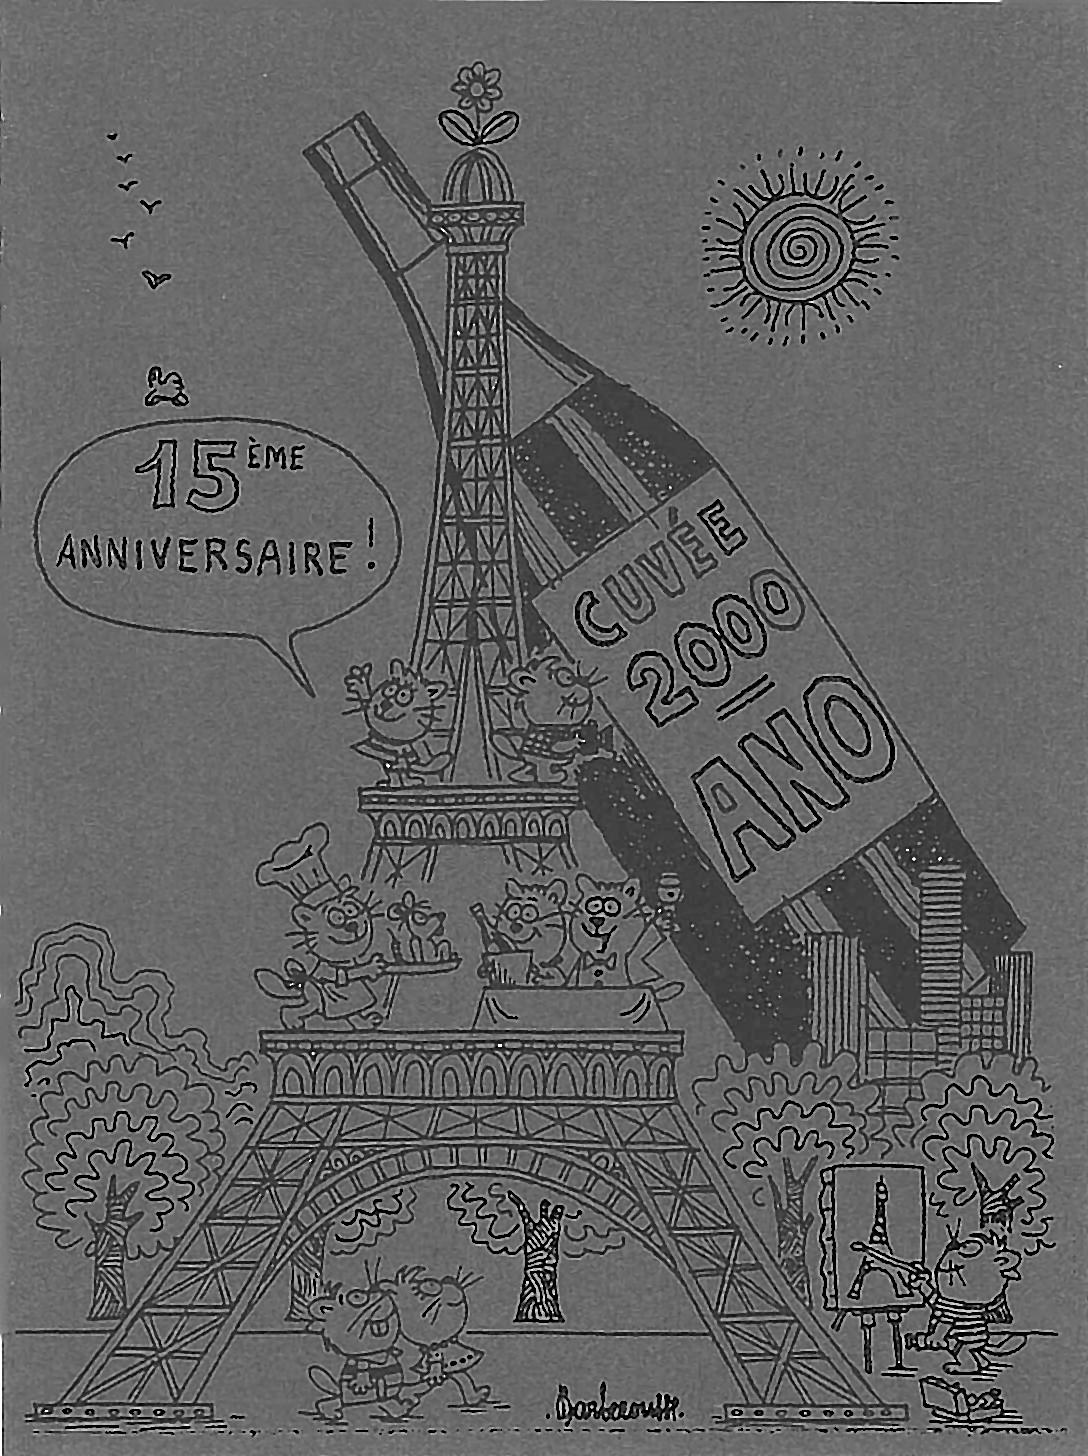 15ÈME
ANNIVERSAIRE !
CUVÉE
2000
ANO
Barberousse.